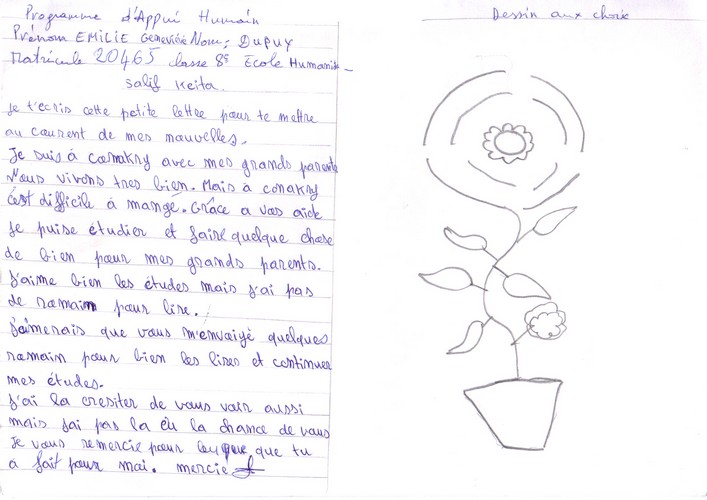 Programme d'Appui Humain
Prénom EMILIE Geneviève Nom: Dupuy
Matricule 20465 classe 8e Ecole Humanité
Salif Keita.
Je t'ecris cette petite lettre pour te mettre
au courent de mes nouvelles.
Je suis à conakry avec mes grands parents
Nous vivons tres bien. Mais à conakry
c'est difficile à mangé. Grâce a vos aide
je puise étudier et faire quelque chose
de bien pour mes grands parents.
J'aime bien les études mais j'ai pas
de romain pour lire.
j'aimerais que vous m'envoiyé quelques
romain pour bien les lires et continuer
mes études.
J'ai la de vous voir aussi
mais j'ai pas la eu la chance de vous
Je vous remercie pour que tu
a fait pour moi. mercie
Dessin aux choix